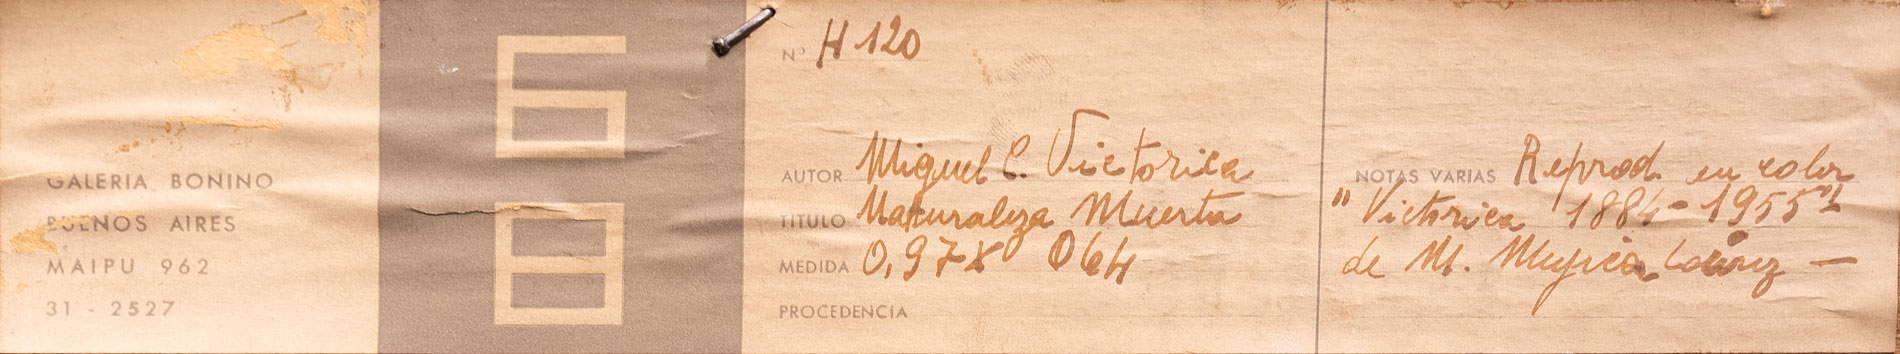 GALERIA BONINO
BUENOS AIRES
MAIPU 962
31 - 2527
Nº H 120
AUTOR Miguel C. Victorica
TITULO Naturaleza Muerta
MEDIDA 0,97 x 064
PROCEDENCIA
NOTAS VARIAS Reprod. en color
"Victorica 1884-1955"
de M. Mujica Láinez —